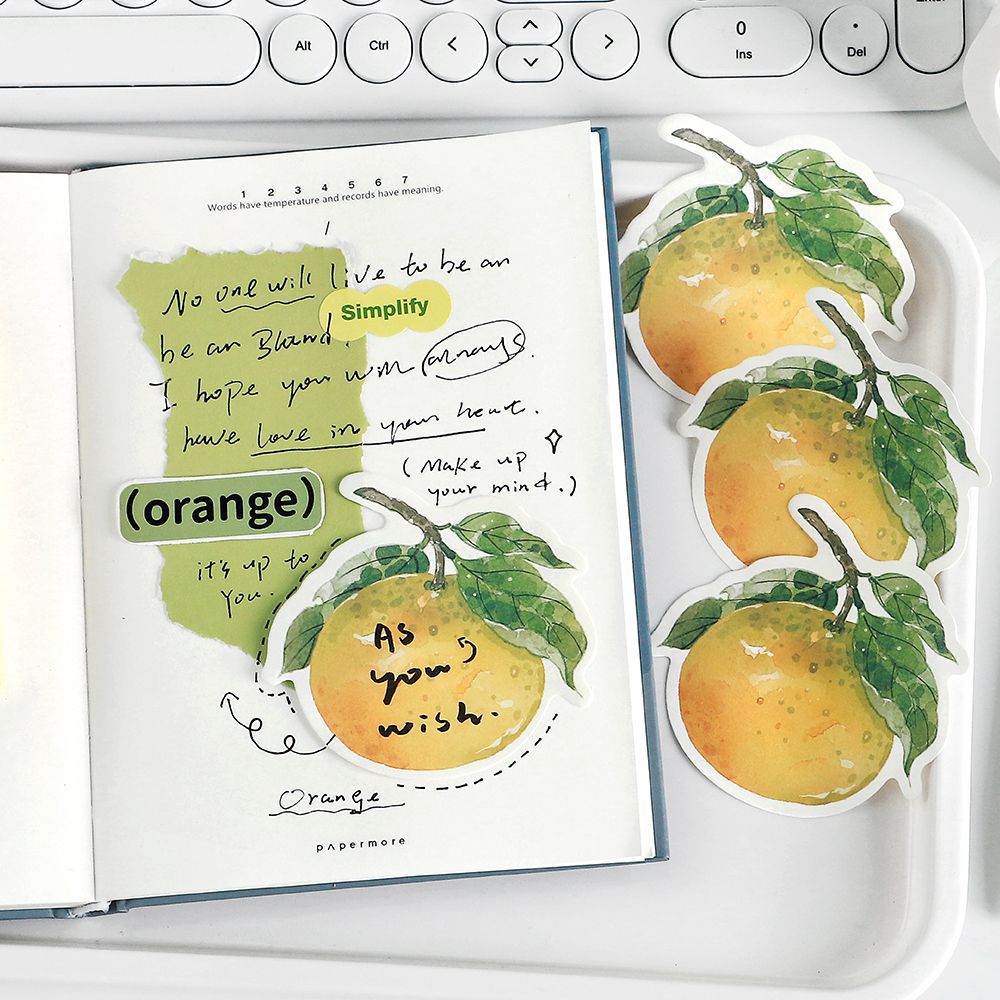 Alt
Ctrl
<
>
0
Ins
.
Del
1 2 3 4 5 6 7
Words have temperature and records have meaning.
No one will live to be an
Simplify
be an Island.
I hope you will always.
have love in your heart.
(Make up
your mind.)
(orange)
it's up to
you.
As
you
wish.
Orange
papermore